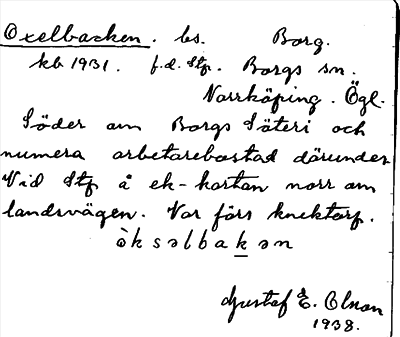 Oxelbacken. bs. Borg.
kb 1931. f.d. Stp. Borgs sn.
Norrköping. Ögl.
Söder om Borgs Säteri och
numera arbetarebostad därunder
Vid Stp å ek-kartan norr om
landsvägen. Var förr knektorp.
òksəlbakən
Gustaf E. Olson
1938.